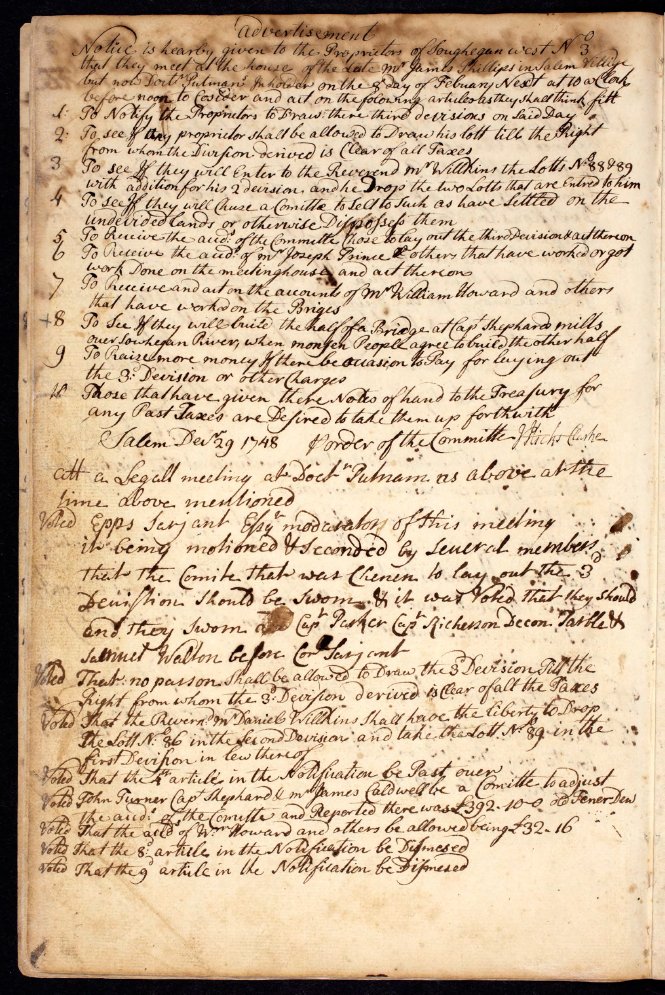 Advertisement
Notice is hearby given to the Proprietors of Souhegan west No 3
that they meet at the house of the Late Mr James Phillips in Salem Village
but now Doctr Putmans Inholder on the 8 day of Febuary Next at 10 a Clock
before noon to Cosider and act on the foloing articles as they shall think fitt
1: To Notify the Proprietors to Draw there third devisions on Said Day
2: To see if any proprietor shall be allowed to Draw his lott till the Right
from whom the Division derived is Clear of all Taxes
3 To see If they will Enter to the Reverend Mr Willkins the Lotts No 88 & 89
with addition for his 2 devision and he Drop the two Lotts that are Entred to him
4 To see If they will Chuse a Comitte to Sell to Such as have Settled on the
undevided lands or otherwise Disposess them
5 To Receive the accts of the Committe Chose to lay out the third Devision & act thereon
6 To Receive the accts of mr Joseph Prince & others that have worked or got
work Done on the meetinghouse and act thereon
7 To Receive and act on the accounts of Mr William Howard and others
that have worked on the Briges
8 To See If they will build the half of a Bridge at Capt Shephard mills
over Sowhegan River, when monson People agree to build the other half
9 To Raize more money If there be occasion to Pay for laying out
the 3d Devision or other Charges
10 Those that have given there Notes of hand to the Treasury for
any Past Taxes are Desired to take them up forthwith
Salem Decr 29 1748 order of the Committe
att a Legall meeting at Doctr Putnam as above at the
time above mentioned
Voted Epps Sarjant Esqr moderator of this meeting
it being motioned & Seconded by Several members
that the Comite that was Chosen to lay out the 3d
Devistion Should be Sworn & it was Voted that they should
and they Sworn Capt Parker Capt Richerson Decon Tarble &
Samuel Walton before Cor Sarjant
Voted That no parson Shall be allowed to Draw the 3 Devision Till the
Right from whom the 3d Devision derived is Clear of all the Taxes
Voted That the Revern Mr Daniel Willkins Shall have the liberty to Drop
the Lott No 86 in the Second Devision and take the Lott No 89 in the
first Devision in lew thereof
Voted That the 4th article in the Notification be Past over
Voted John Turner Capt Shephard & mr James Caldwell be a Comitte to adjust
the accts of the Comitte and Reported there was £392-10-0 old Tener Due
Voted That the accts of Wm Howard and others be allowed being £32-16
Voted that the 8d article in the Notification be Dismesed
Voted That the 9d article in the Notification be Dismesed